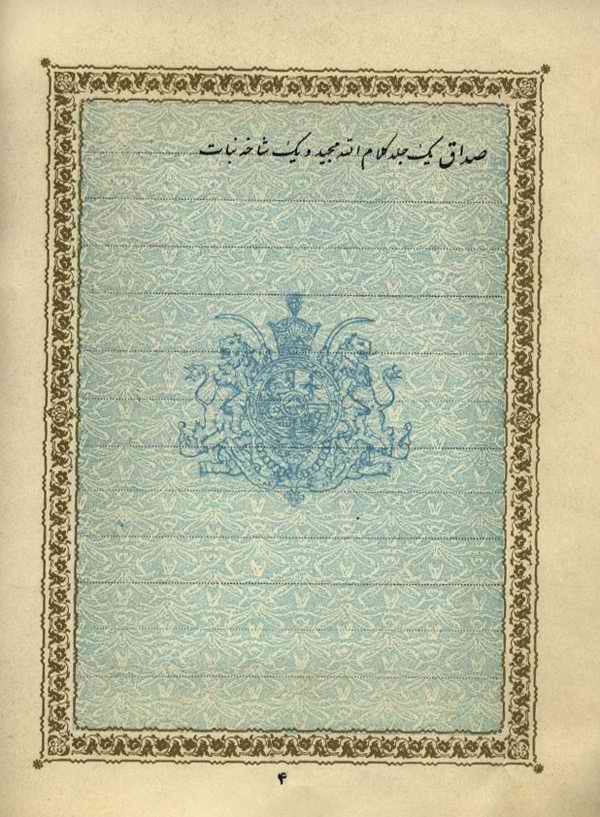 صداق یک جلد کلام الله مجید و یک شاخه نبات
۴